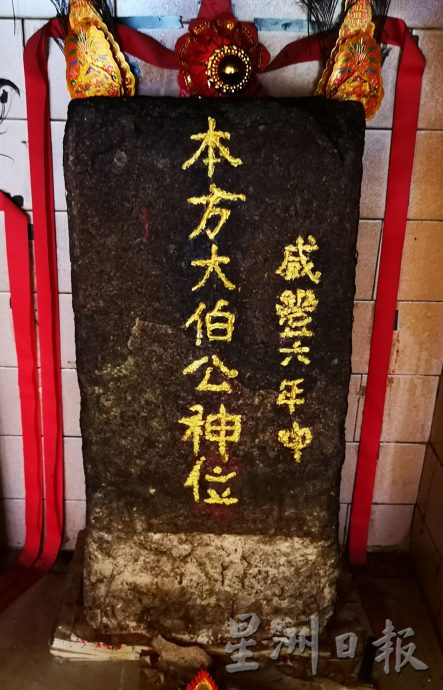 咸豐六年
本方大伯公神位
星洲日報